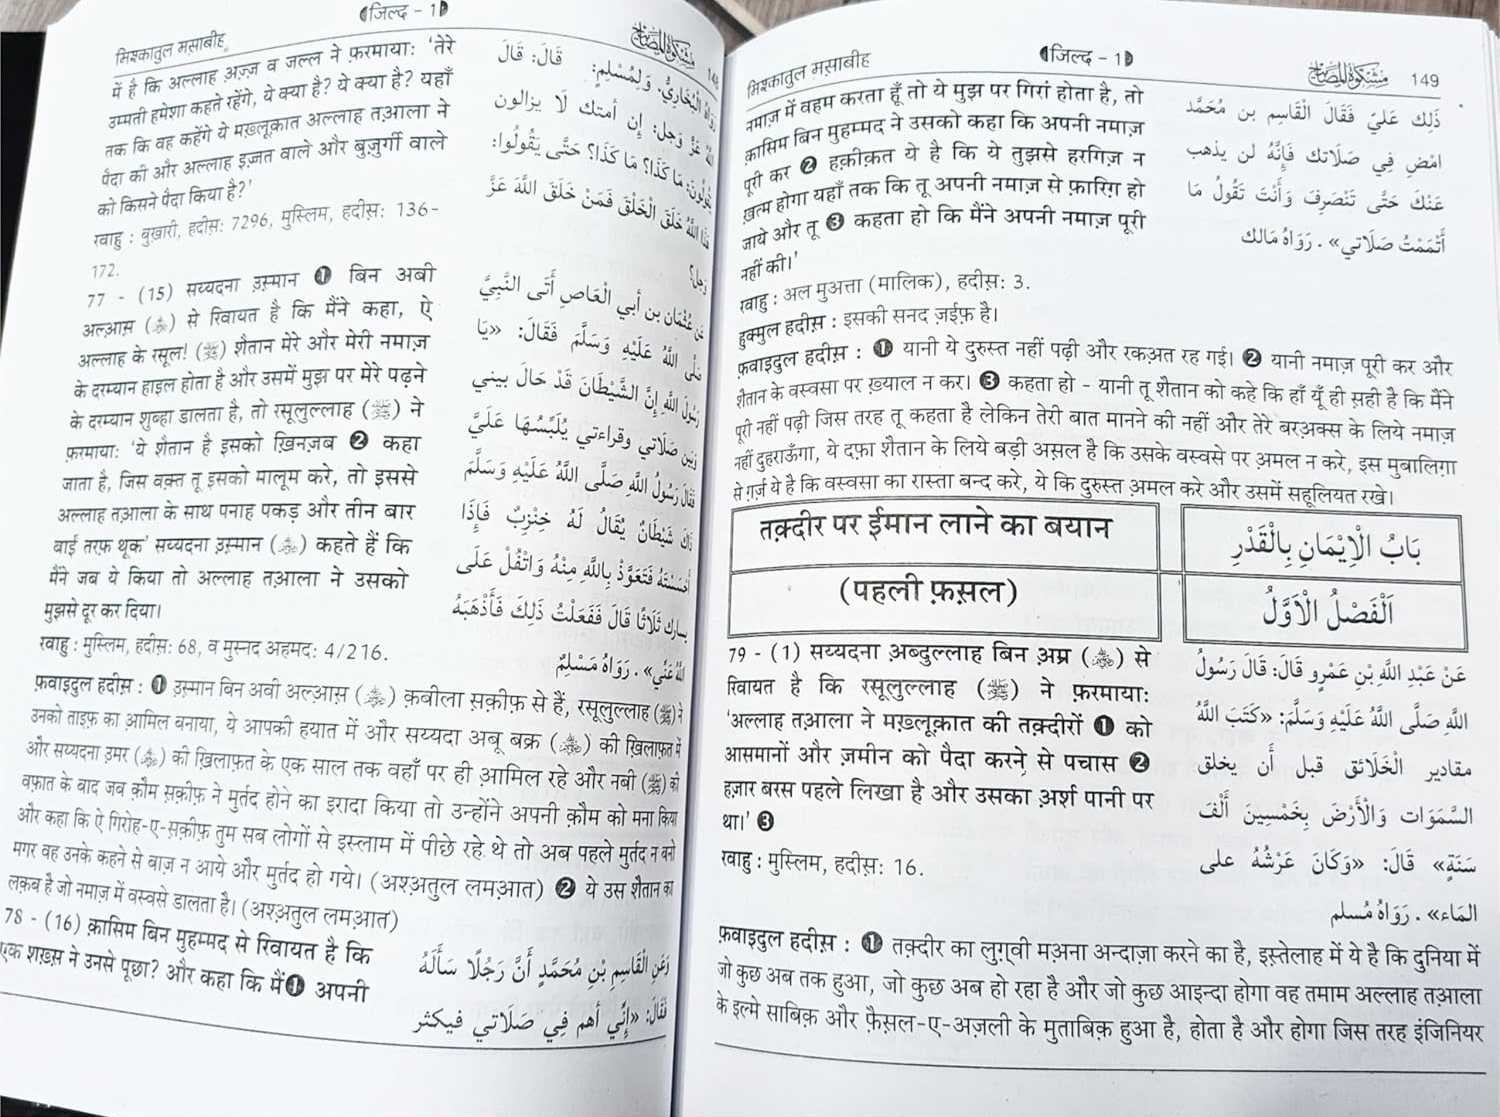 मिश्कातुल मस़ाबीह़
जिल्द - 1
مشكوة المصابيح
148
में है कि अल्लाह अ़ज़्ज़ व जल्ल ने फ़रमायाः 'तेरे
उम्मती हमेशा कहते रहेंगे, ये क्या है? ये क्या है? यहाँ
तक कि वह कहेंगे ये मख़्लूक़ात अल्लाह तआ़ला ने
पैदा की और अल्लाह इज़्ज़त वाले और बुज़ुर्गी वाले
को किसने पैदा किया है?'
रवाहु : बुख़ारी, हदीस़ः 7296, मुस्लिम, हदीस़ः 136-
172.
رَوَاهُ الْبُخَارِيُّ. وَلِمُسْلِمٍ: قَالَ: قَالَ
اللَّهُ عَزَّ وَجل: إِن أمتك لَا يزالون
يَقُولُونَ: مَا كَذَا؟ مَا كَذَا؟ حَتَّى يَقُولُوا:
هَذَا اللَّهُ خَلَقَ الْخَلْقَ فَمَنْ خَلَقَ اللَّهَ عَزَّ
وَجل؟
77 - (15) सय्यदना उ़स़्मान ❶ बिन अबी
अल्आ़स़ (رضي الله عنه) से रिवायत है कि मैंने कहा, ऐ
अल्लाह के रसूल! (ﷺ) शैतान मेरे और मेरी नमाज़
के दरम्यान हाइल होता है और उसमें मुझ पर मेरे पढ़ने
के दरम्यान शुब्हा डालता है, तो रसूलुल्लाह (ﷺ) ने
फ़रमायाः 'ये शैतान है इसको ख़िनज़ब ❷ कहा
जाता है, जिस वक़्त तू इसको मालूम करे, तो इससे
अल्लाह तआ़ला के साथ पनाह पकड़ और तीन बार
बाईं तरफ़ थूक' सय्यदना उ़स़्मान (رضي الله عنه) कहते हैं कि
मैंने जब ये किया तो अल्लाह तआ़ला ने उसको
मुझसे दूर कर दिया।
रवाहु : मुस्लिम, हदीस़ः 68, व मुस्नद अहमदः 4/216.
عَن عُثْمَان بن أبي الْعَاصِ أَتَى النَّبِيَّ
صَلَّى اللَّهُ عَلَيْهِ وَسَلَّمَ فَقَالَ: «يَا
رَسُولَ اللَّهِ إِنَّ الشَّيْطَانَ قَدْ حَالَ بيني
وَبَين صَلَاتي وقراءتي يُلَبِّسُهَا عَلَيَّ
فَقَالَ رَسُولُ اللَّهِ صَلَّى اللَّهُ عَلَيْهِ وَسَلَّمَ
ذَاكَ شَيْطَانٌ يُقَالُ لَهُ خِنْزِبٌ فَإِذَا
أَحْسَسْتَهُ فَتَعَوَّذْ بِاللَّهِ مِنْهُ وَاتْفُلْ عَلَى
يسارك ثَلَاثًا قَالَ فَفَعَلْتُ ذَلِكَ فَأَذْهَبَهُ
اللَّهُ عَنِّي». رَوَاهُ مُسْلِمٌ
फ़वाइदुल हदीस़ : ❶ उ़स़्मान बिन अबी अल्आ़स़ (رضي الله عنه) क़बीला स़क़ीफ़ से हैं, रसूलुल्लाह (ﷺ) ने
उनको ताइफ़ का आमिल बनाया, ये आपकी हयात में और सय्यदा अबू बक्र (رضي الله عنه) की ख़िलाफ़त में
और सय्यदना उ़मर (رضي الله عنه) की ख़िलाफ़त के एक साल तक वहाँ पर ही आ़मिल रहे और नबी (ﷺ) की
वफ़ात के बाद जब क़ौम स़क़ीफ़ ने मुर्तद होने का इरादा किया तो उन्होंने अपनी क़ौम को मना किया
और कहा कि ऐ गिरोह-ए-स़क़ीफ़ तुम सब लोगों से इस्लाम में पीछे रहे थे तो अब पहले मुर्तद न बनो
मगर वह उनके कहने से बाज़ न आये और मुर्तद हो गये। (अश्अ़तुल लमआ़त) ❷ ये उस शैतान का
लक़ब है जो नमाज़ में वस्वसे डालता है। (अश्अ़तुल लमआ़त)
78 - (16) क़ासिम बिन मुहम्मद से रिवायत है कि
एक शख़्स ने उनसे पूछा? और कहा कि मैं❶ अपनी
وَعَنِ الْقَاسِمِ بْنِ مُحَمَّدٍ أَنَّ رَجُلًا سَأَلَهُ
فَقَالَ: «إِنِّي أهم فِي صَلَاتي فيكثر
मिश्कातुल मस़ाबीह़
जिल्द - 1
مشكوة المصابيح
149
नमाज़ में वहम करता हूँ तो ये मुझ पर गिरां होता है, तो
क़ासिम बिन मुहम्मद ने उसको कहा कि अपनी नमाज़
पूरी कर ❷ हक़ीक़त ये है कि ये तुझसे हरगिज़ न
ख़त्म होगा यहाँ तक कि तू अपनी नमाज़ से फ़ारिग़ हो
जाये और तू ❸ कहता हो कि मैंने अपनी नमाज़ पूरी
नहीं की।'
रवाहु : अल मुअत्ता (मालिक), हदीस़ः 3.
हुक्मुल हदीस़ : इसकी सनद ज़ईफ़ है।
ذَلِك عَليّ فَقَالَ الْقَاسِم بن مُحَمَّد
امْضِ فِي صَلَاتك فَإِنَّهُ لن يذهب
عَنْكَ حَتَّى تَنْصَرِفَ وَأَنْتَ تَقُولُ مَا
أَتْمَمْتُ صَلَاتي». رَوَاهُ مَالك
फ़वाइदुल हदीस़ : ❶ यानी ये दुरुस्त नहीं पढ़ी और रकअ़त रह गई। ❷ यानी नमाज़ पूरी कर और
शैतान के वस्वसा पर ख़्याल न कर। ❸ कहता हो - यानी तू शैतान को कहे कि हाँ यूँ ही स़ही है कि मैंने
पूरी नहीं पढ़ी जिस तरह तू कहता है लेकिन तेरी बात मानने की नहीं और तेरे बरअ़क्स के लिये नमाज़
नहीं दुहराऊँगा, ये दफ़ा शैतान के लिये बड़ी असल है कि उसके वस्वसे पर अमल न करे, इस मुबालिग़ा
से ग़र्ज़ ये है कि वस्वसा का रास्ता बन्द करे, ये कि दुरुस्त अ़मल करे और उसमें सहूलियत रखे।
तक़्दीर पर ईमान लाने का बयान
بَابُ الْاِيْمَانِ بِالْقَدْرِ
(पहली फ़स़ल)
اَلْفَصْلُ الْاَوَّلُ
79 - (1) सय्यदना अ़ब्दुल्लाह बिन अ़म्र (رضي الله عنه) से
रिवायत है कि रसूलुल्लाह (ﷺ) ने फ़रमायाः
'अल्लाह तआ़ला ने मख़्लूक़ात की तक़्दीरों ❶ को
आसमानों और ज़मीन को पैदा करने से पचास ❷
हज़ार बरस पहले लिखा है और उसका अ़र्श पानी पर
था।' ❸
रवाहु : मुस्लिम, हदीस़ः 16.
عَنْ عَبْدِ اللَّهِ بْنِ عَمْرٍو قَالَ: قَالَ رَسُولُ
اللَّهِ صَلَّى اللَّهُ عَلَيْهِ وَسَلَّمَ: «كَتَبَ اللَّهُ
مقادير الْخَلَائق قبل أَن يخلق
السَّمَوَات وَالْأَرْضَ بِخَمْسِينَ أَلْفَ
سَنَةٍ» قَالَ: «وَكَانَ عَرْشُهُ على
المَاء». رَوَاهُ مُسلم
फ़वाइदुल हदीस़ : ❶ तक़्दीर का लुग़्वी मअ़ना अन्दाज़ा करने का है, इस्तेलाह में ये है कि दुनिया में
जो कुछ अब तक हुआ, जो कुछ अब हो रहा है और जो कुछ आइन्दा होगा वह तमाम अल्लाह तआ़ला
के इल्मे साबिक़ और फ़ैस़ल-ए-अज़ली के मुताबिक़ हुआ है, होता है और होगा जिस तरह इंजिनियर